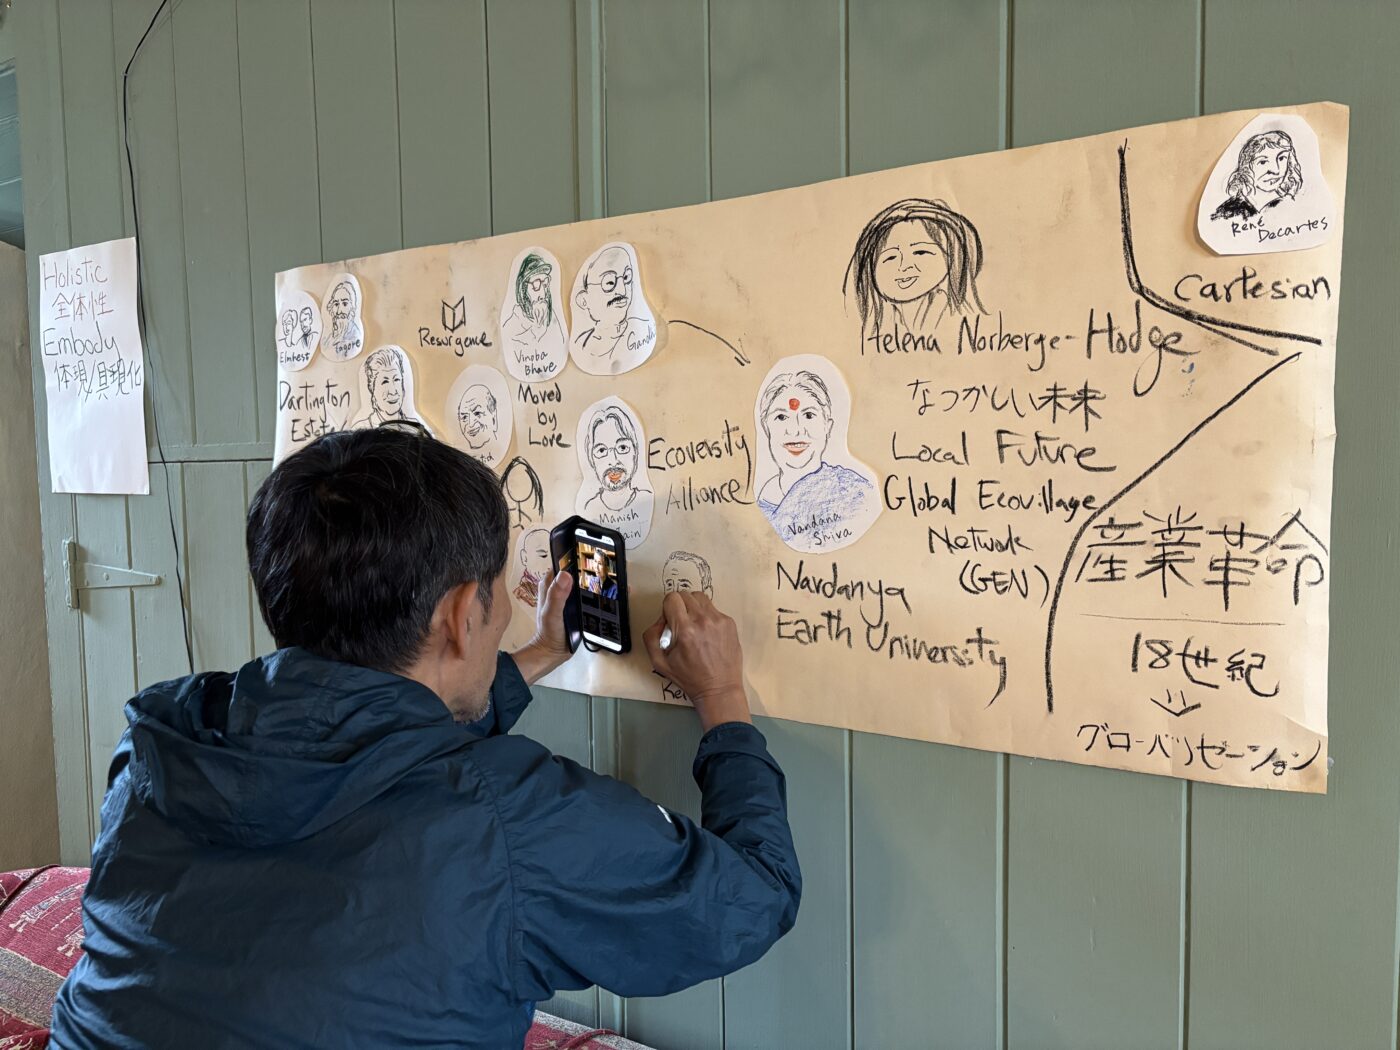 Holistic
全体性
Embody
体現/具現化
Elmhest
Tagore
Dartington
Estate
Resurgence
Vinoba
Bhave
Gandhi
Moved
by
Love
Manish
Jain
Ecoversity
Alliance
Vandana
Shiva
Navdanya
Earth University
Helena Norberge-Hodge
なつかしい未来
Local Future
Global Ecovillage
Network
(GEN)
René
Decartes
Cartesian
産業革命
18世紀
グローバリゼーション